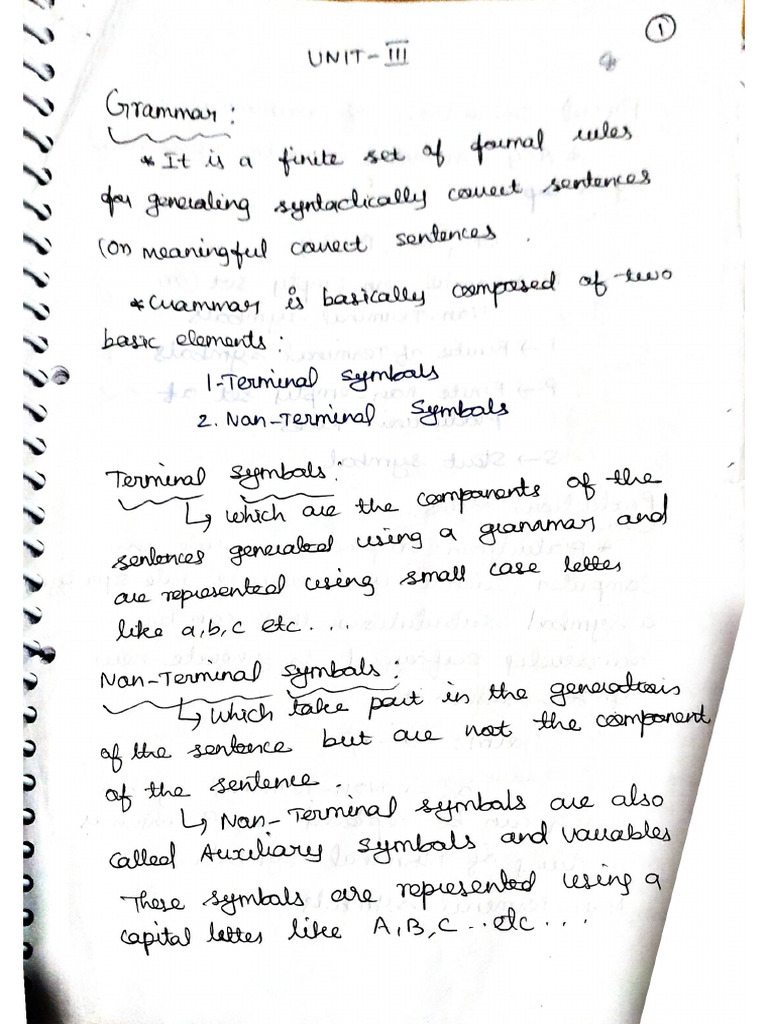 1
UNIT-III
Grammar:
* It is a finite set of formal rules
for generating syntactically correct sentences
(or) meaningful correct sentences.
* Grammar is basically composed of two
basic elements:
1-Terminal symbols
2. Non-Terminal Symbols
Terminal symbols:
↳ which are the components of the
sentences generated using a grammar and
are represented using small case letter
like a,b,c etc...
Non-Terminal symbols:
↳ Which take part in the generation
of the sentence but are not the component
of the sentence.
↳ Non-Terminal symbols are also
called Auxiliary symbols and variables
These symbols are represented using a
capital letter like A,B,C..etc...